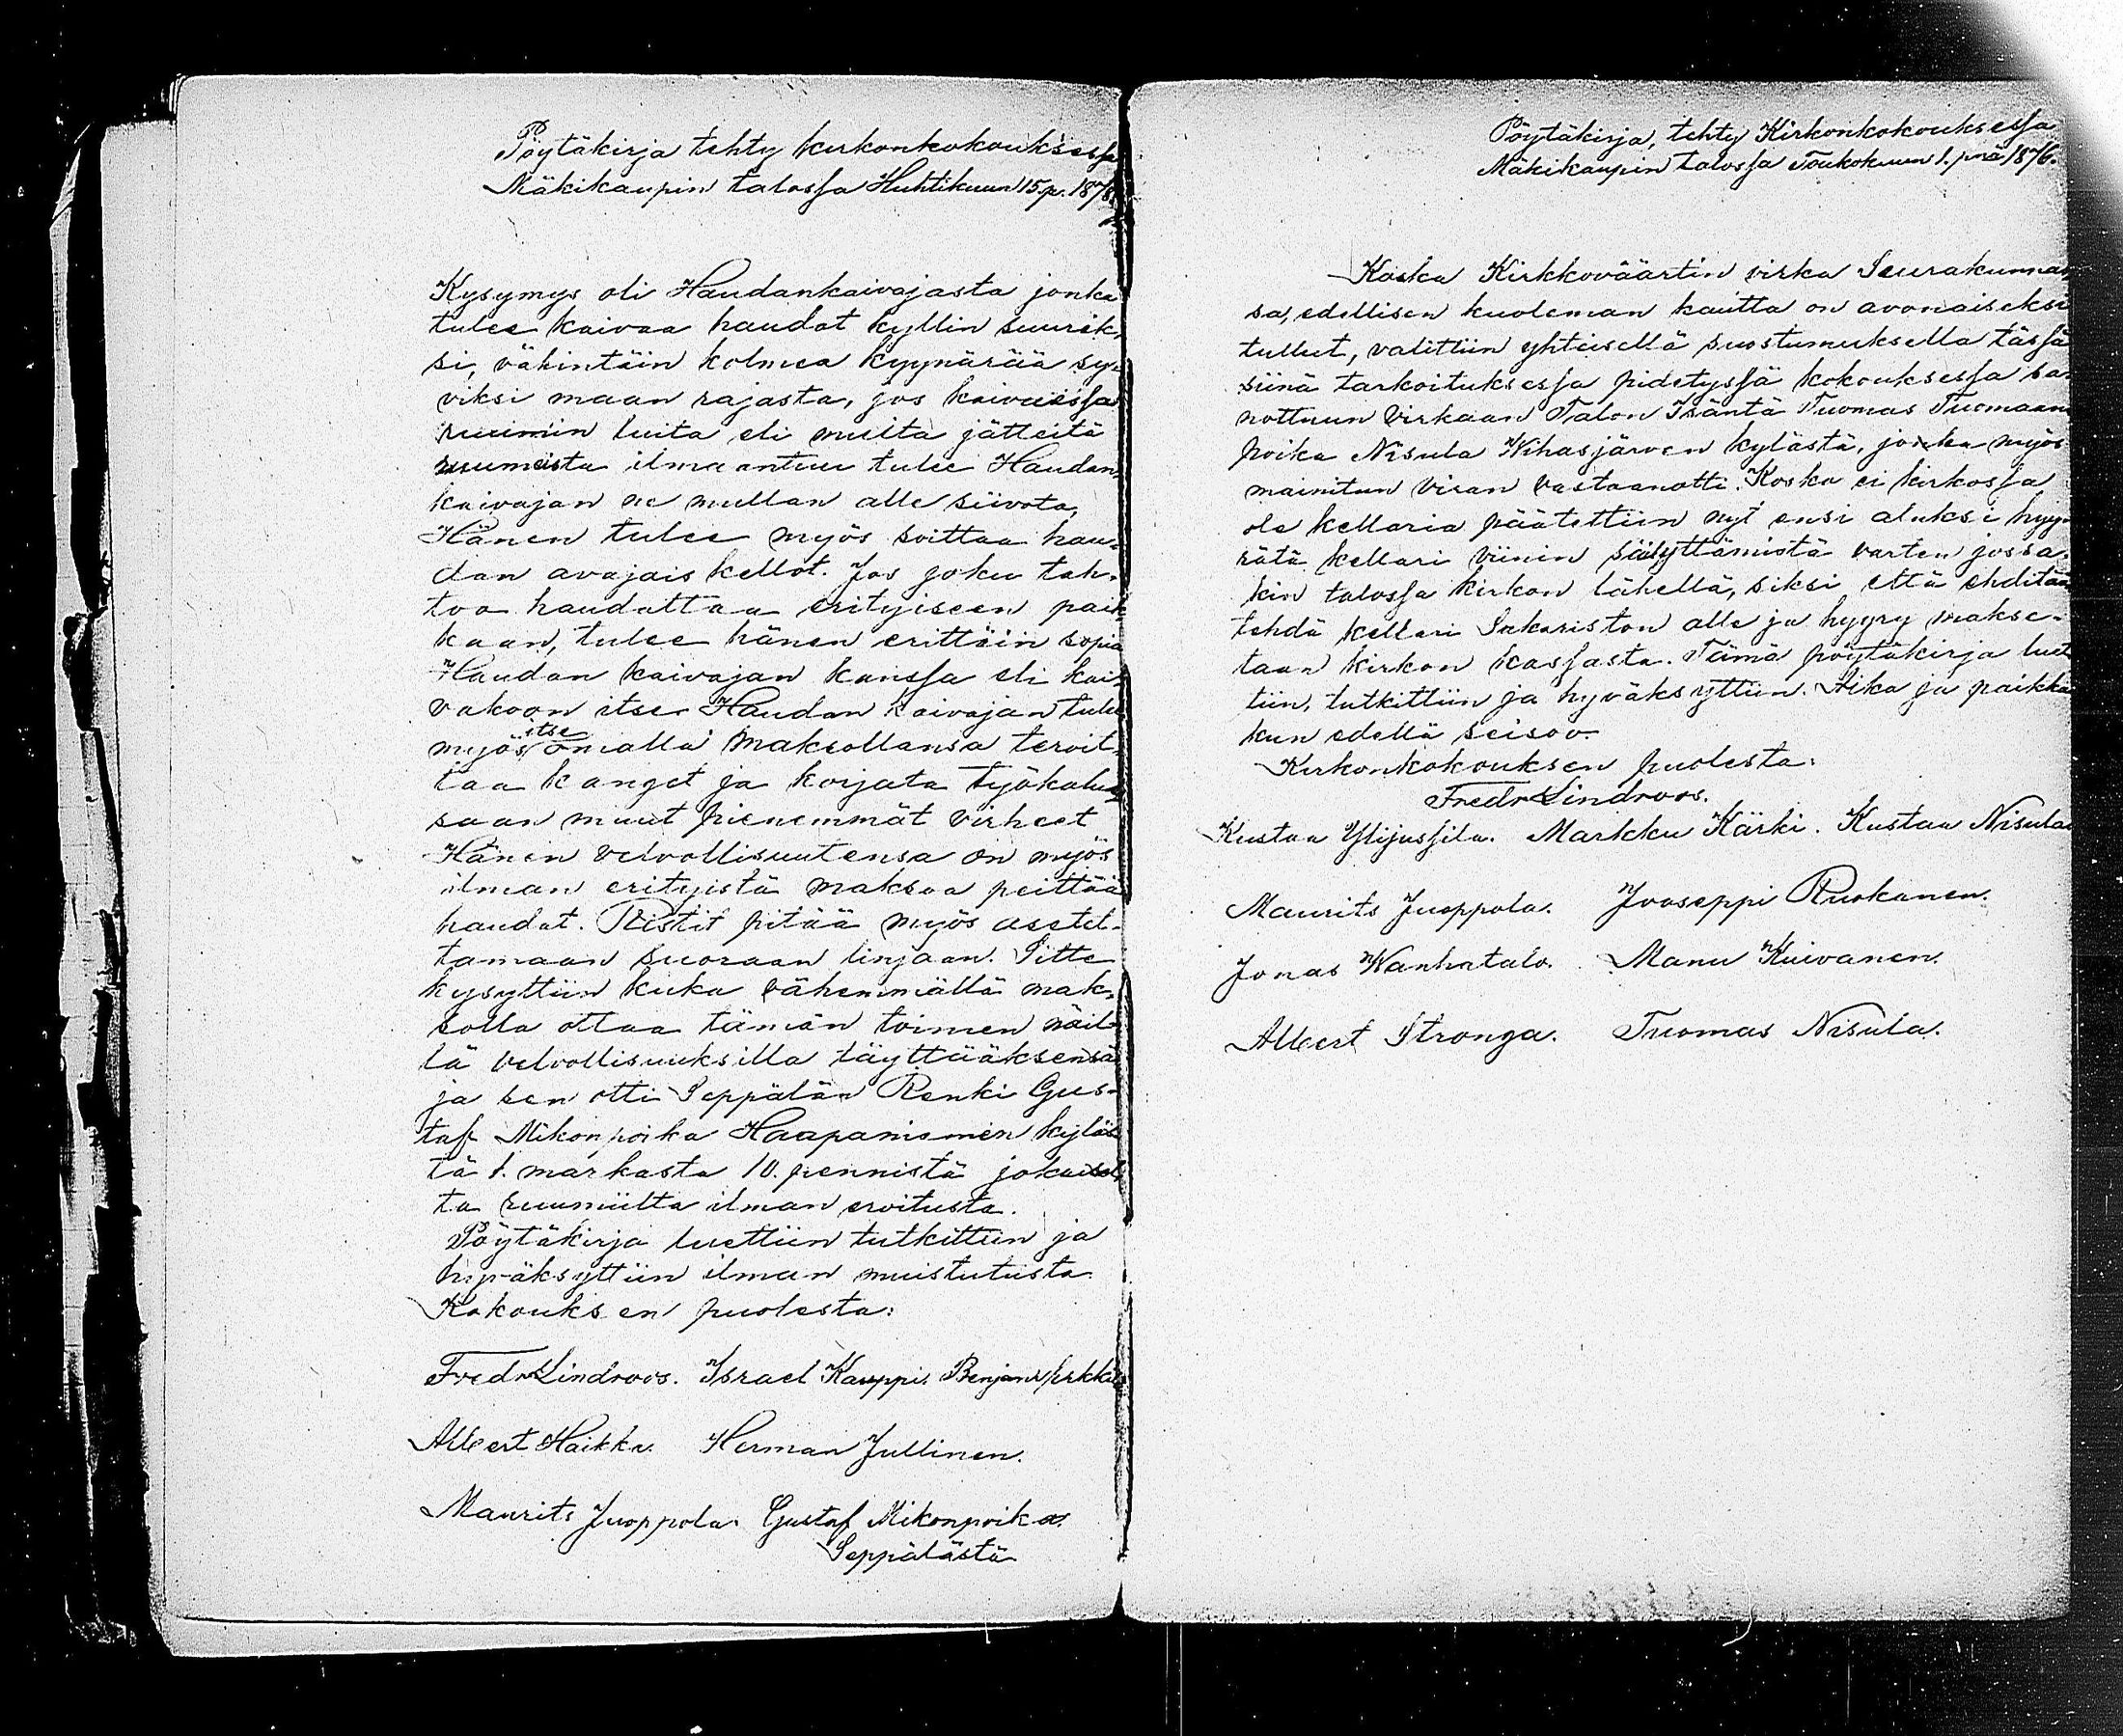 Pöytäkirja tehty kirkonkokouksessa
Mäkikaupin talossa Huhtikuun 15 p. 1878
Kysymys oli Haudankaivajasta jonka
tulee kaivaa haudat kyllin suurik-
si, väkintäin kolmea kyynärää sy-
viksi maan rajasta, jos kaivaissa
ruumin luita eli muita jätteitä
ruumista ilmaantuu tulee Haudan
kaivajan ne mullan alle siivota,
Hänen tulee myös soittaa hau-
dan avajais kellot. Jos joku tah-
too haudattaa erityiseen paik-
kaan, tulee hänen erittäin sopia
Haudan kaivajan kanssa eli kai-
vakoon itse. Haudan kaivajan tulee
myös itse omalla maksollansa teroit-
taa kanget ja korjata työkalus-
saan muut pienemmät virheet
Hänen velvollisuutensa on myös
ilman erityistä maksoa peittää
haudat. Ristit pitää myös asetet-
tamaan suoraan linjaan. Sitte
kysyttiin kuka vähemmällä mak-
solla ottaa tämän toimen näil-
lä velvollisuuksilla täyttääksensä
ja sen otti Seppälän Renki Gus-
taf Mikonpoika Haapanismen kyläs-
tä 1. markasta 10. pennistä jokaisel-
ta ruumiilta ilman eroitusta.
Pöytäkirja luettiin tutkittiin ja
hyväksyttiin ilman muistutusta.
Kokouksen puolesta:
Fredr Lindroos. Israel Kauppi. Benjam Erkkilä
Albert Haikka. Herman Jullinen.
Maurits Juoppola. Gustaf Mikonpoika
Seppälästä
Pöytäkirja, tehty Kirkonkokouksessa
Mäkikaupin talossa Toukokuun 1. pnä 1876.
Koska Kirkkoväärtin virka Seurakunnas-
sa, edellisen kuoleman kautta on avonaiseksi
tullut, valittiin yhteisellä suostumuksella tässä
siinä tarkoituksessa pidetyssä kokouksessa sa-
nottuun virkaan Talon Isäntä Tuomas Tuomaan
poika Nisula Wihasjärven kylästä, jonka myös
mainitun viran vastaanotti. Koska ei kirkossa
ole kellaria päätettiin nyt ensi aluksi hyy-
rätä kellari viinin säilyttämistä varten jossa-
kin talossa kirkon lähellä, siksi että ehditään
tehdä kellari Sakariston alle ja hyyry makse-
taan kirkon kassasta. Tämä pöytäkirja luet-
tiin, tutkittiin ja hyväksyttiin. Aika ja paikka
kun edellä seisoo.
Kirkonkokouksen puolesta:
Fredr Lindroos.
Kustaa Ylijussila. Markku Kärki. Kustaa Nisula
Maurits Juoppola. Jooseppi Ruokanen.
Jonas Wanhatalo. Manu Kuivanen.
Albert Stronga. Tuomas Nisula.